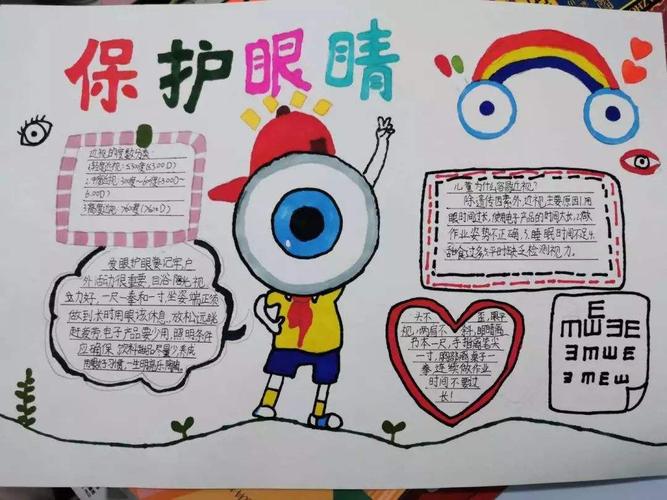 保护眼睛
近视的度数分类:
1.轻度近视:≤300度(≤3.00D)
2.中度近视:300度~600度(3.00D~
6.00D)
3.高度近视:>600度(>6.00D)
爱眼护眼要记牢,户
外活动很重要,自浴阳光视
立力好,一尺一拳和一寸,坐姿端正须
做到,长时用眼该休息,放松远眺
赶疲劳,电子产品要少用,照明条件
应确保,饮料甜品尽量少,养成
用眼好习惯,一生明亮乐陶陶。
儿童为什么容易近视?
除遗传因素外,近视主要原因:1.用
眼时间过长,使用电子产品的时间太长,2.做
作业姿势不正确,3.睡眠时间不足,4.
甜食过多,5.平时缺乏检测视力。
头不歪,眼平
视,两肩不斜,眼睛离
书本一尺,手指离笔尖
一寸,胸部离桌子一
拳,连续做作业
时间不要过
长!
E
E M W 3 E
E 3 M W E
E 3 M W E M